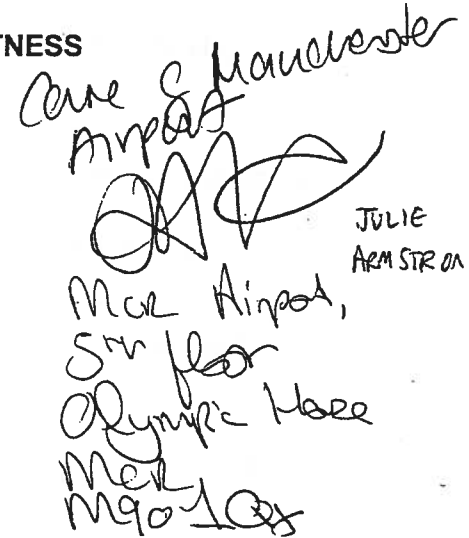 TNESS
Care of Manchester
Airport
JULIE
ARMSTRON
MCR Airport,
5TH floor
Olympic House
MCR
M90 1QX